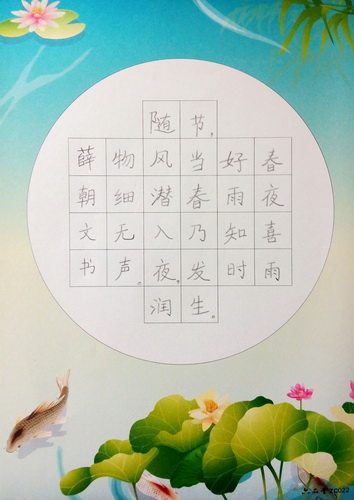 春夜喜雨
好雨知时
节，当春乃发生。
随风潜入夜。润
物细无声。
薛朝文书